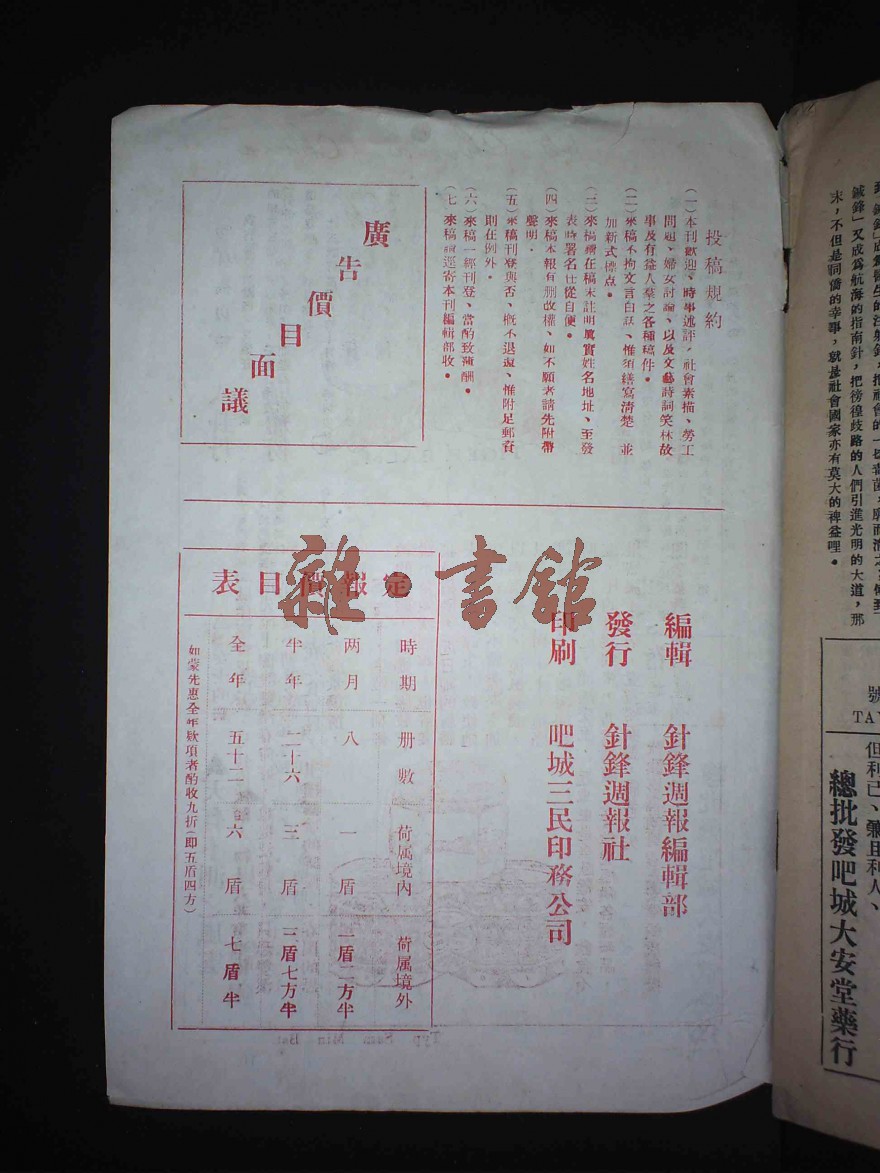 投稿規約
(一)本刊歡迎、時事述評、社會素描、勞工
問題、婦女討論、以及文藝詩詞笑林故
事及有益人羣之各種稿件。
(二)來稿不拘文言白話、惟須繕寫淸楚 並
加新式標点。
(三)來稿須在稿末註明眞實姓名地址、至發
表時署名任從自便。
(四)來稿本報有刪改權、如不願者請先附帶
聲明。
(五)來稿刊登與否、槪不退還、惟附足郵資
則在例外。
(六)來稿一經刊登、當酌致薄酬。
(七)來稿請逕寄本刊編輯部收。
廣告價目面議
編輯 針鋒週報編輯部
發行 針鋒週報社
印刷 吧城三民印務公司
定報價目表
時期 册數 荷属境內 荷属境外
两月 八 一盾 一盾二方半
半年 二十六 三盾 三盾七方半
全年 五十二 六盾 七盾半
如蒙先惠全年欵項者酌收九折(即五盾四方)
雜・書館
鍼鋒」又成爲航海的指南針,把徬徨歧路的人們引進光明的大道,那
末,不但是同僑的幸事,就是社會國家亦有莫大的裨益哩。
號
TAY
但利己、兼且利人、
總批發吧城大安堂藥行
Typ Sam Min Bat